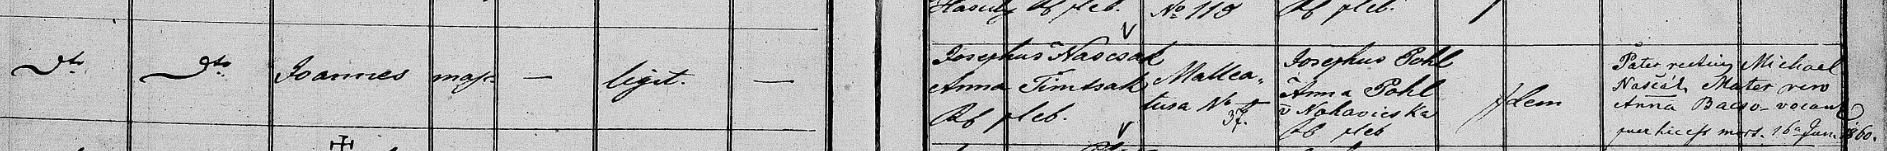 No 119
Rf pleb.
Dto Dto Joannes masc. — legit. —
Josephus Nascsak
Anna Timtsak
Rf pleb.
Mallea-
tura No 37.
Josephus Pohl
Anna Pohl
v Nohavicska
Rf pleb
Idem
Pater rectius Michael
Nascák Mater vero
Anna Bacso vocant
puer hic est mort. 16a Jun. 1860.